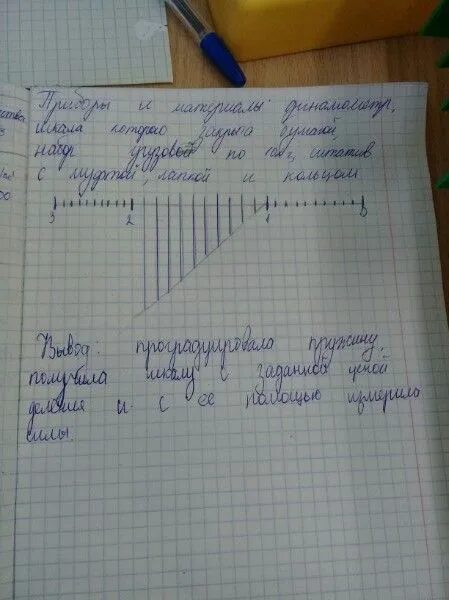 Приборы и материалы: динамометр,
шкала которого закрыта бумагой,
набор грузовый по 102г, штатив
с муфтой, лапкой и кольцом
3 2 1 0
Вывод: проградуировала пружину,
получила шкалу с заданной ценой
деления и с её помощью измерила
силы.